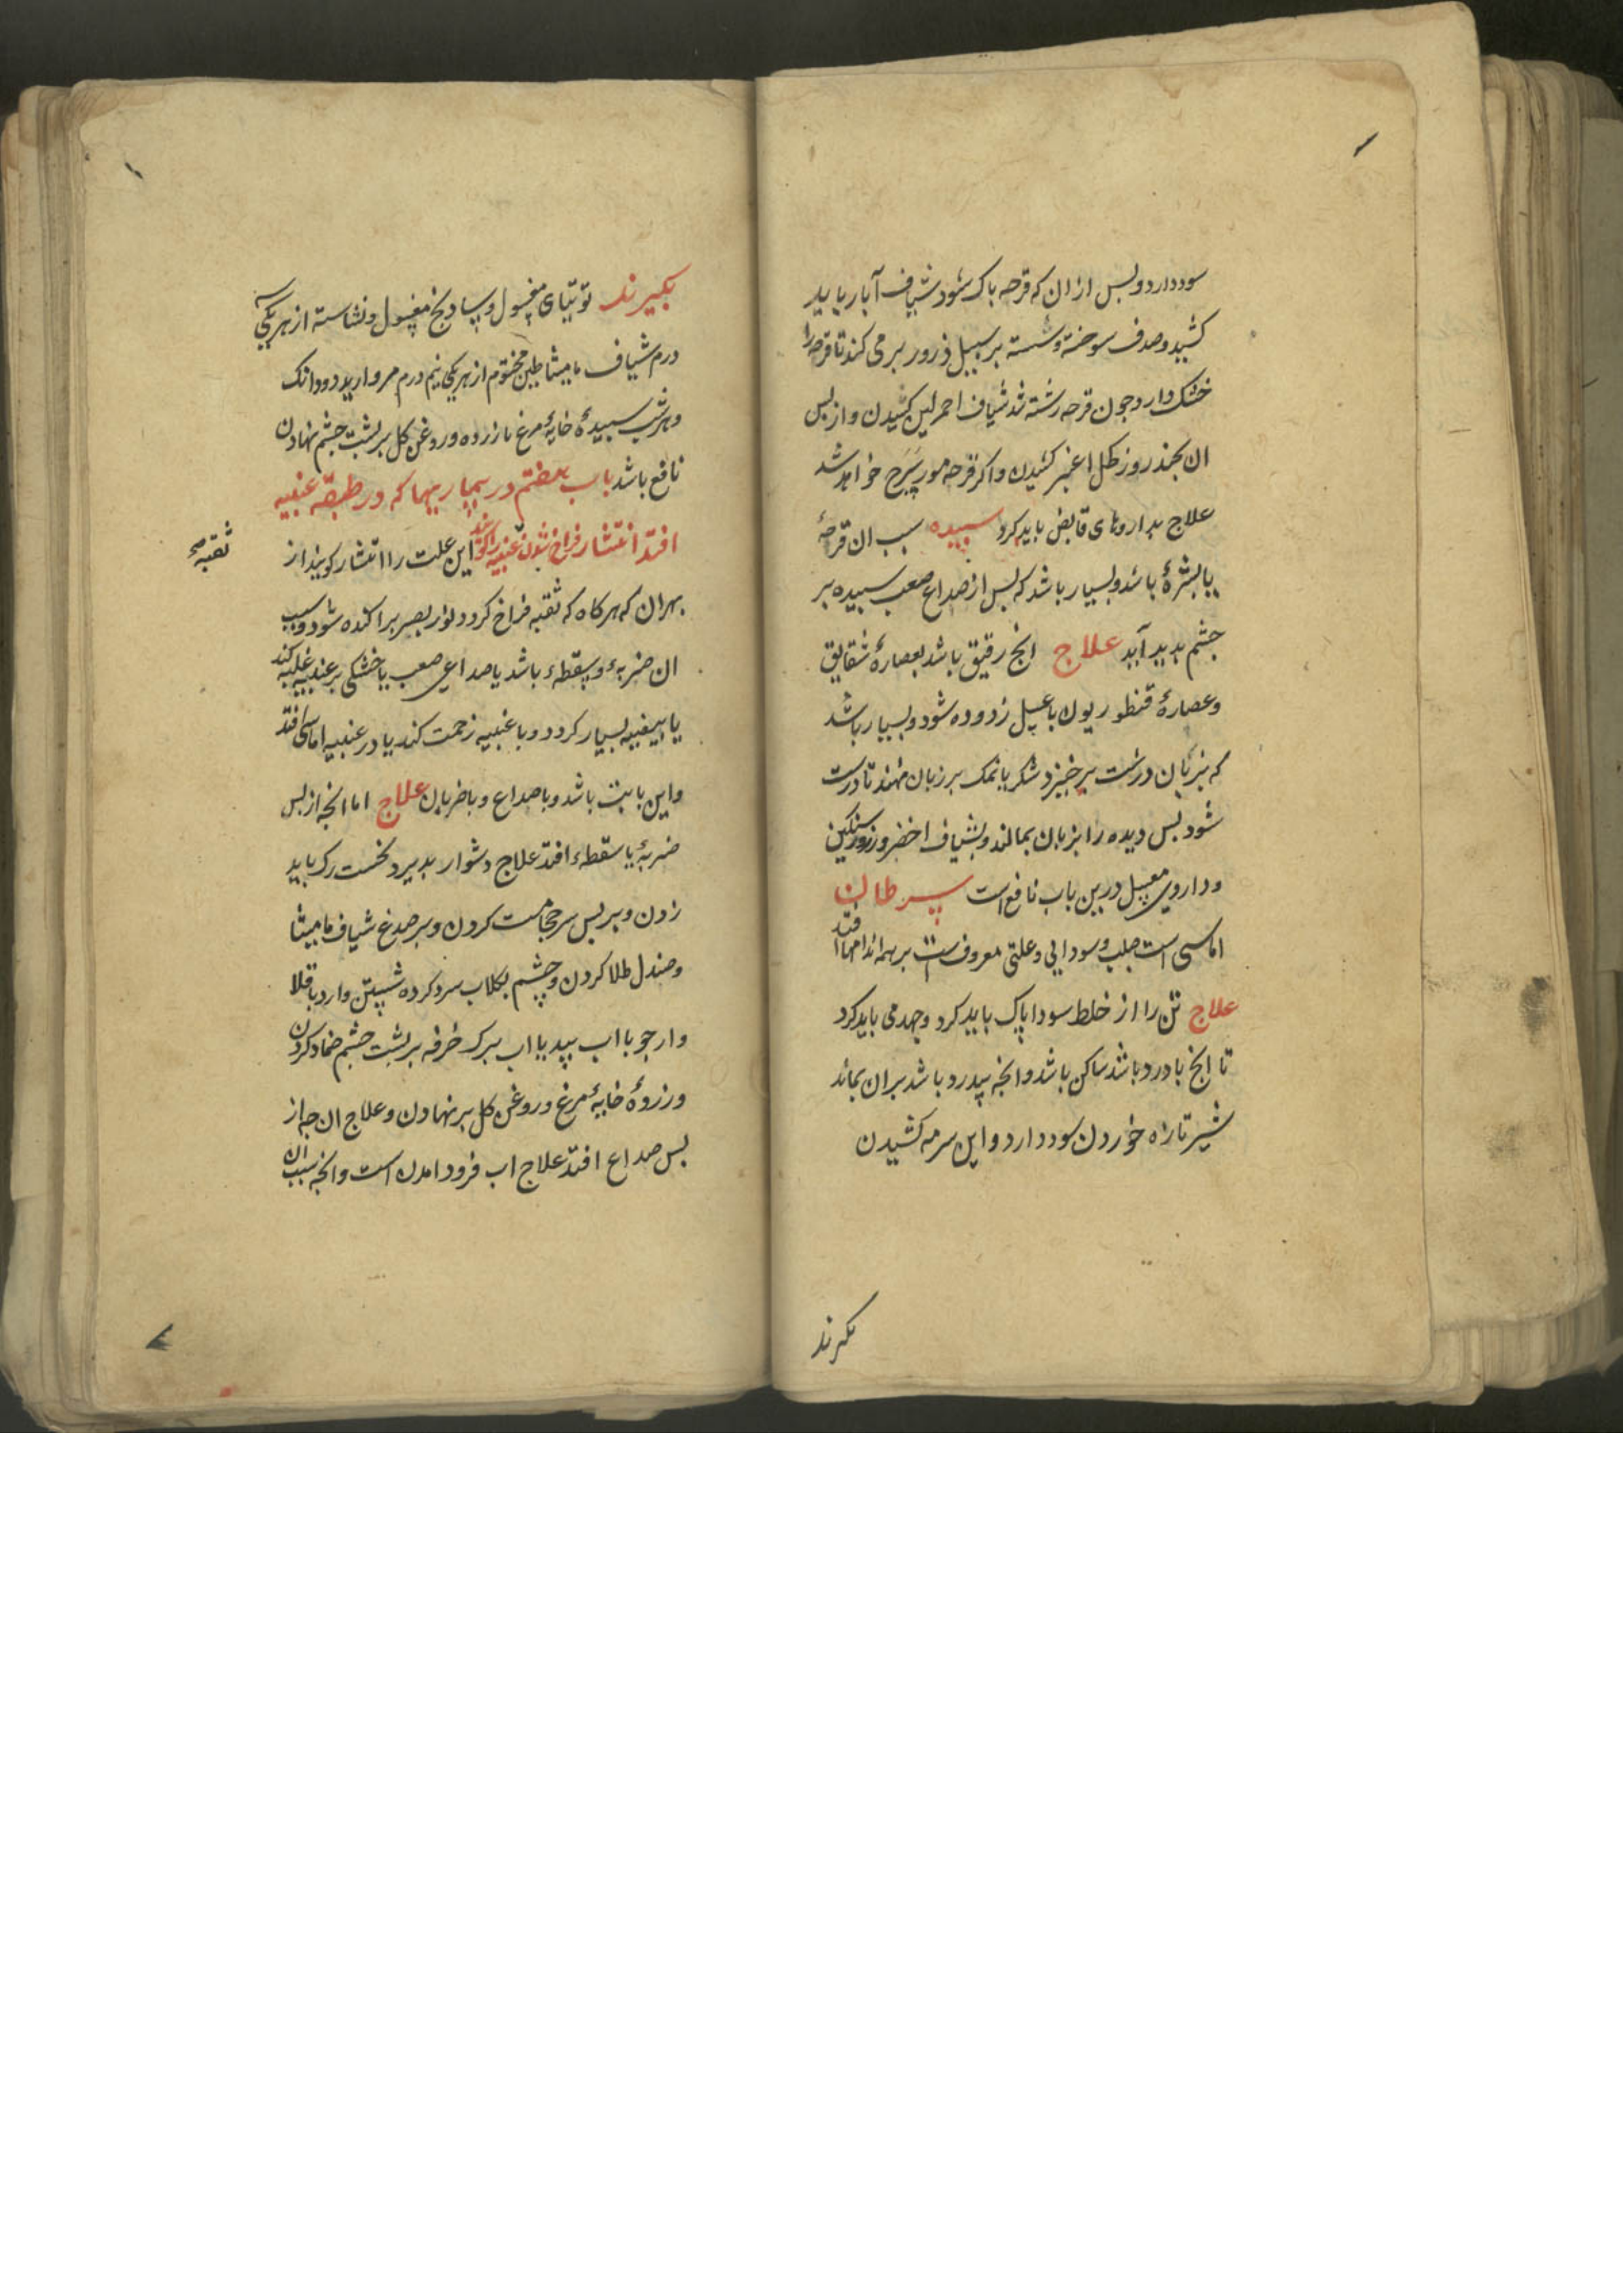 سود دارد و بس از ان که قرحه باک شود شیاف آبار باید
کشید و صدف سوخته و شسته بر سبیل ذرور بر می کند تا قرحه را
خشک دارد جون قرحه رشته شد شیاف احمر لین کشیدن و از بس
ان بجند روز کحل اغبر کشیدن و اکر قرحه مورسرج خواهد شد
علاج بداروهای قابض باید کرد سبیده سبب ان قرحهٔ
یا بشرهٔ باشد و بسیار باشد که بس از صداع صعب سبیده بر
جشم بدید آید علاج انج رقیق باشد بعصارهٔ شقایق
و عصارهٔ قنطوریون با عسل زدوده شود و بسیار باشد
که بزبان درشت برخیزد شکر یا نمک بر زبان نهند تا درست
شود بس دیده را بزبان بمالند و بشیاف اخضر و زرور سنکین
و داروی معسل درین باب نافع است سرطان
اماسی است صلب و سودایی و علتی معروف است بر همه اندامها افتد
علاج تن را از خلط سودا پاک باید کرد و جهد می باید کرد
تا انج با درد باشد ساکن باشد و انجه بیدرد باشد بران بماند
شیر تازه خوردن سود دارد و این سرمه کشیدن
بکیرند
بکیرند توتیای مغسول و سادنج مغسول و نشاسته از هر یکی سه
درم شیاف مامیثا طین مختوم از هر یکی نیم درم مروارید دو دانک
و هر شب سبیدهٔ خایهٔ مرغ با زرده و روغن کل بر بشت جشم نهادن
نافع باشد باب هفتم در بیماریهها که در طبقه عنبیه
افتد انتشار فراخ شدن عنبیه را کویند این علت را انتشار کویند از
ثقبه صح
بهر ان که هر کاه که ثقبه فراخ کردد نور بصر براکنده شود و سبب
ان ضربهٔ و سقطهٔ باشد یا صداعی صعب یا خشکی بر عنبیه غلبه کند
یا بیضیه بسیار کردد و با عنبیه زحمت کند یا در عنبیه اماسی افتد
و این با تب باشد و با صداع و با ضربان علاج اما انجه از بس
ضربهٔ یا سقطهٔ افتد علاج دشوار بدیرد نخست رک باید
زدن و بر بس سر حجامت کردن و بر صدغ شیاف مامیثا
و صندل طلا کردن و چشم بکلاب سرد کرده شستن و ارد باقلا
و ارد جو با اب بید یا اب برک خرفه بر بشت جشم ضماد کردن
و زردهٔ خایهٔ مرغ و روغن کل بر نهادن و علاج ان جه از
بس صداع افتد علاج اب فرود امدن است و انجه سبب ان